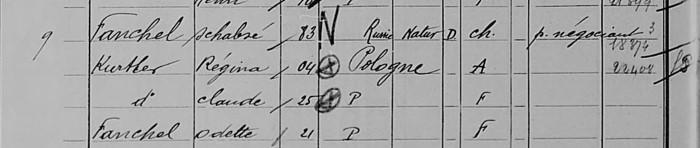 9 Fanchel schabsé / 83 N Russie Natur D. ch. p. négociant 3
18874
Kurtler Régina / 04 Pologne A 22408
d° claude / 25 P F
Fanchel odette / 21 P F